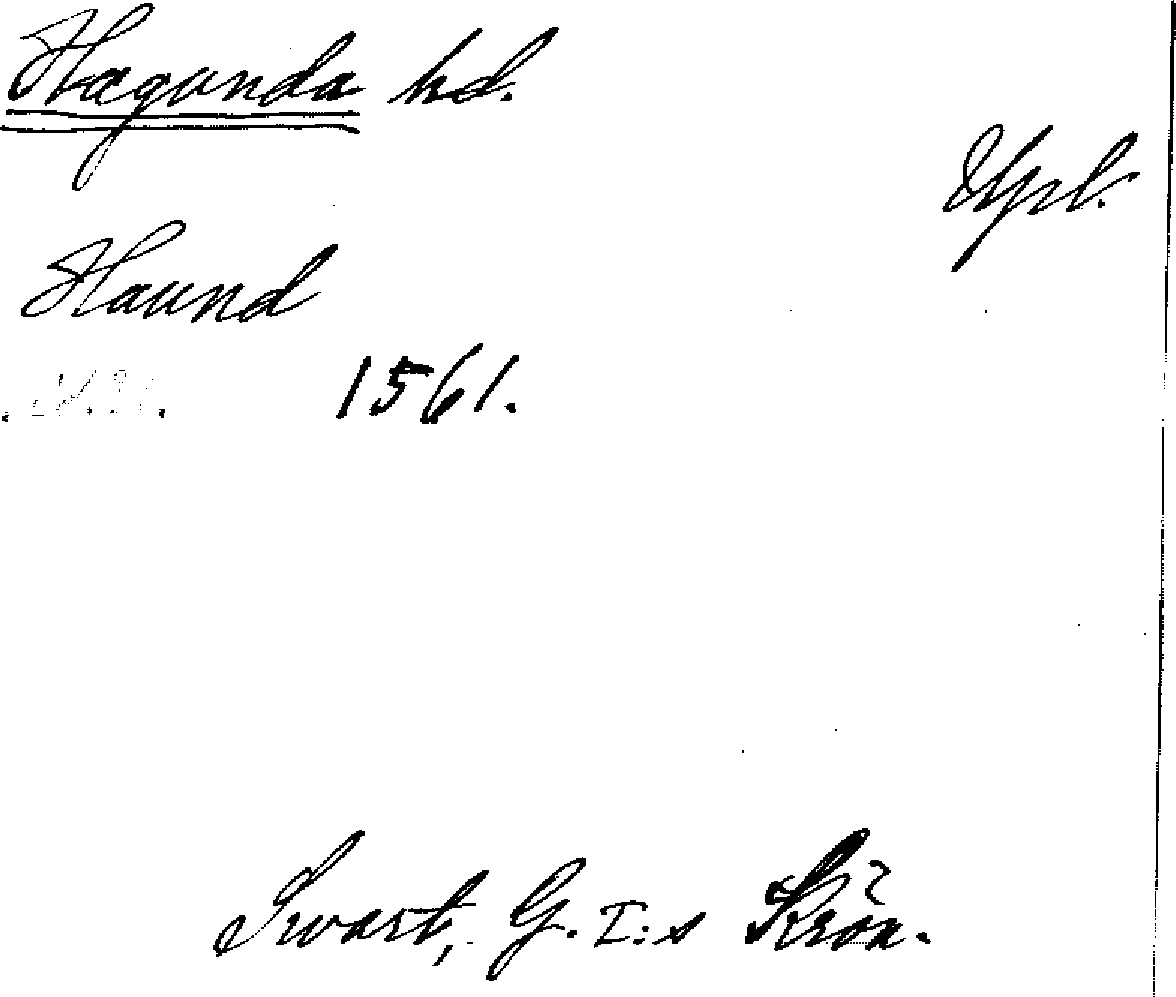 Hagunda hd.
Upl.
Haund
1561.
Swart, G. I:s Krön.